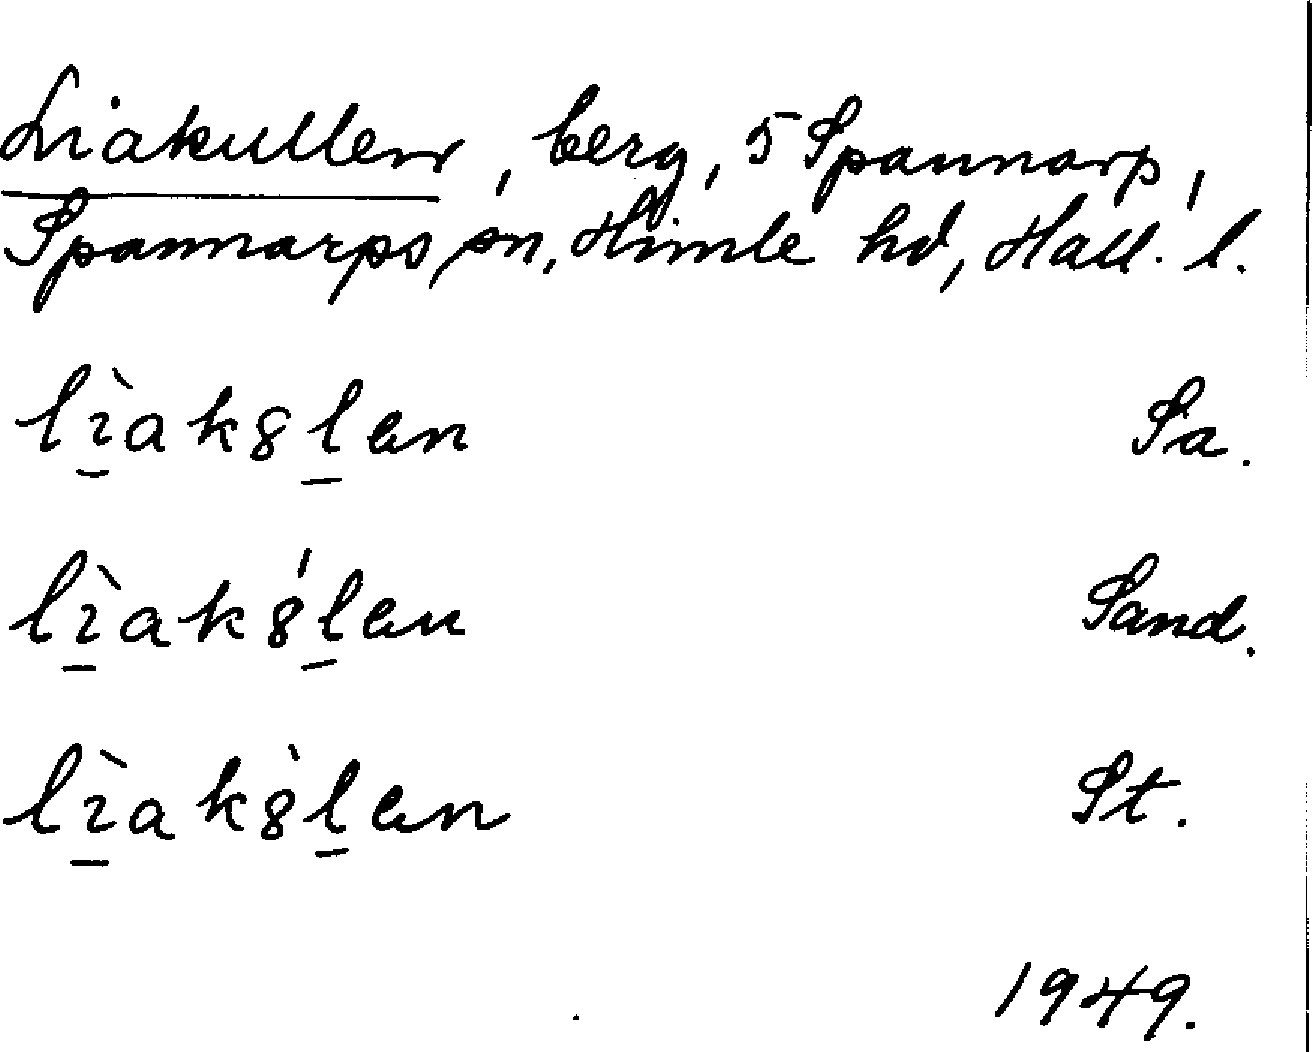 Liakullen, berg, 5 Spannarp,
Spannarps sn, Himle hd, Hall. l.
lı̱̀akȣḻɐn Sa.
lı̱̀akȣ́ḻɐn Sand.
lı̱̀akȣ̀ḻɐn St.
1949.